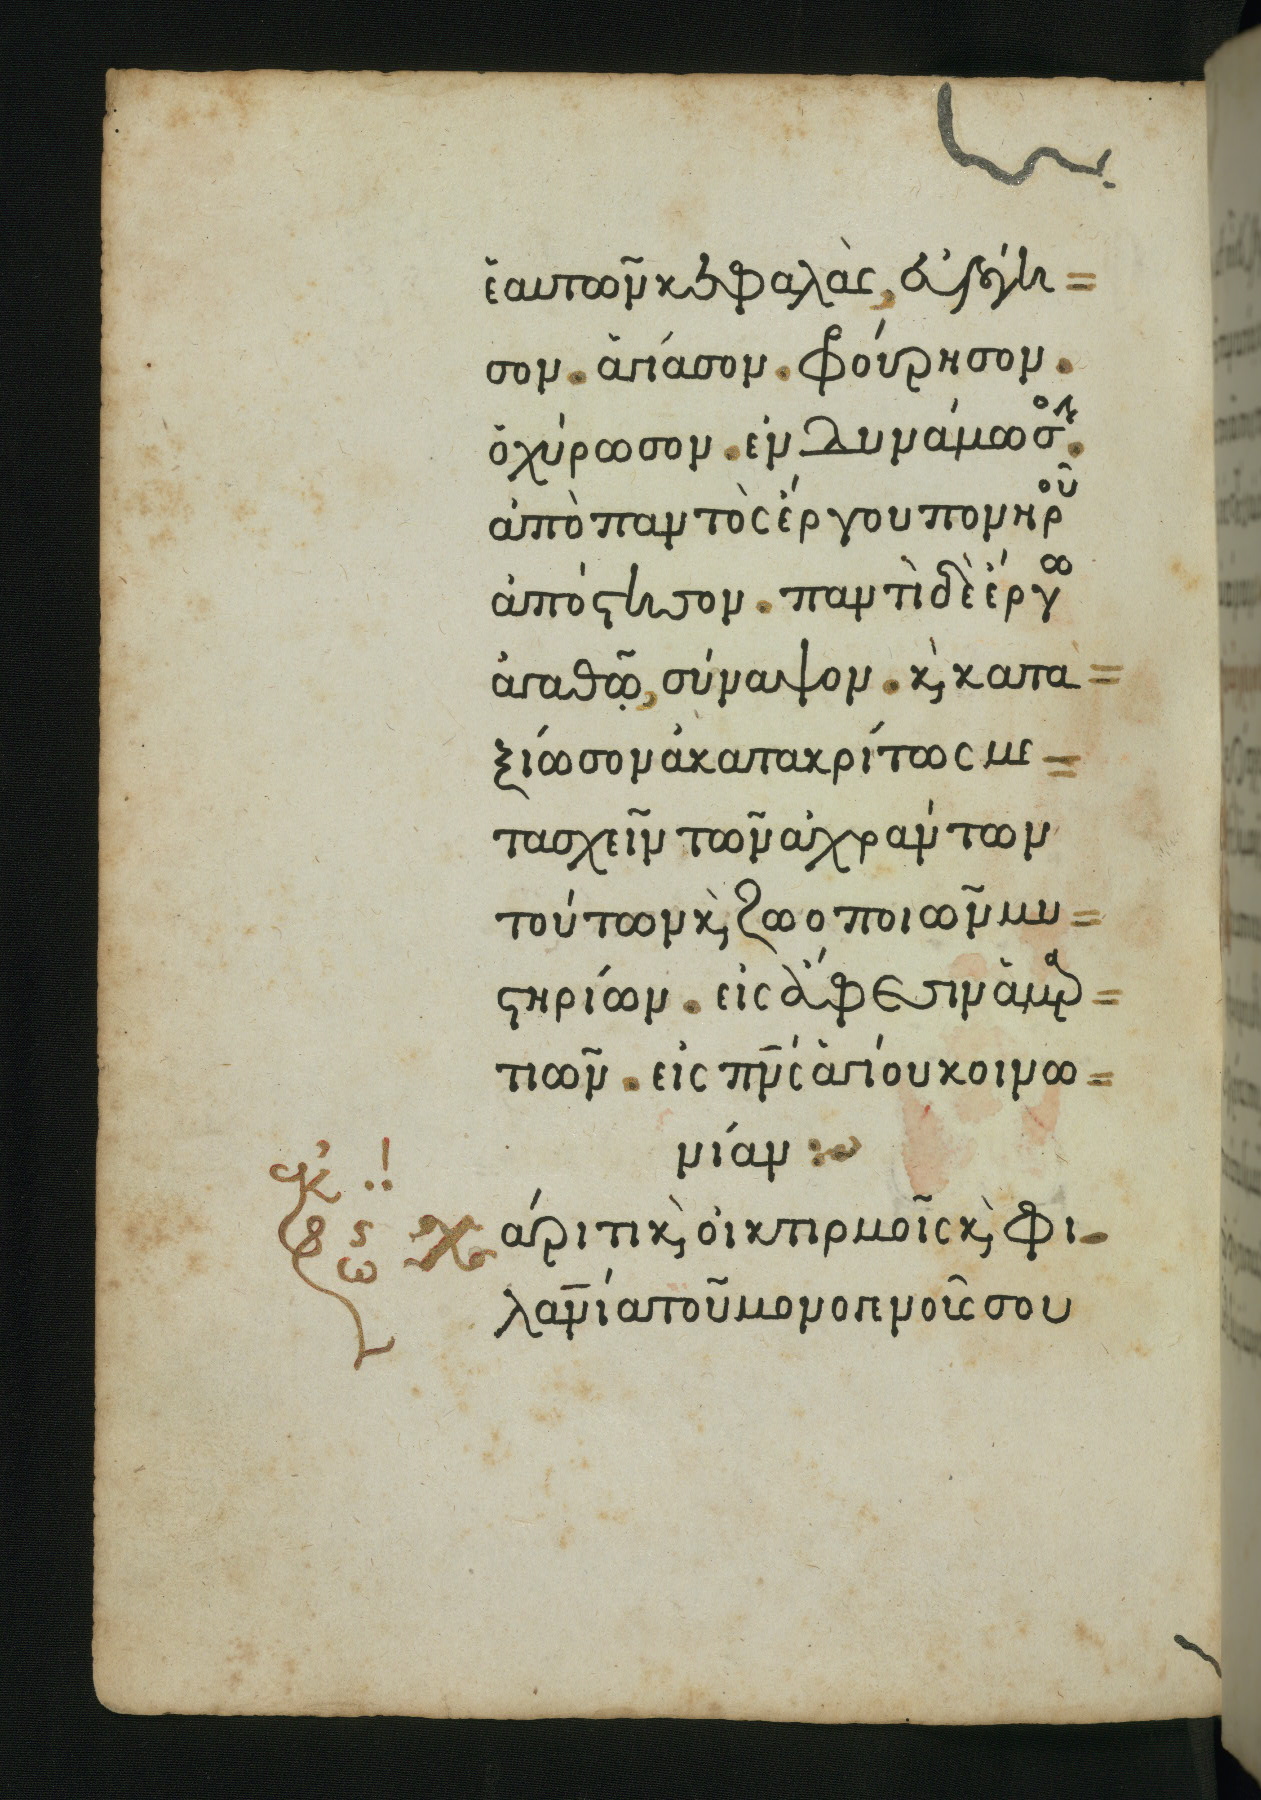 ἑαυτῶν κεφαλὰς, εὐλόγη=
σον. ἁγίασον. φρούρησον.
ὀχύρωσον. ἐνδυνάμωσον.
ἀπὸ παντὸς ἔργου πονηροῦ
ἀπόστησον. παντὶ δὲ ἔργω
ἀγαθῷ, σύναψον. κ, κατα=
ξίωσον ἀκατακρίτως με=
τασχεῖν τῶν ἀχράντων
τούτων κ, ζωοποιῶν μυ=
στηρίων. εἰς ἄφεσιν ἁμαρ=
τιῶν. εἰς πν̅ς ἁγίου κοινω=
νίαν :~
Χάριτι κ, οἰκτιρμοῖς κ, φι-
λαν̅ία τοῦ μονογενοῦς σου